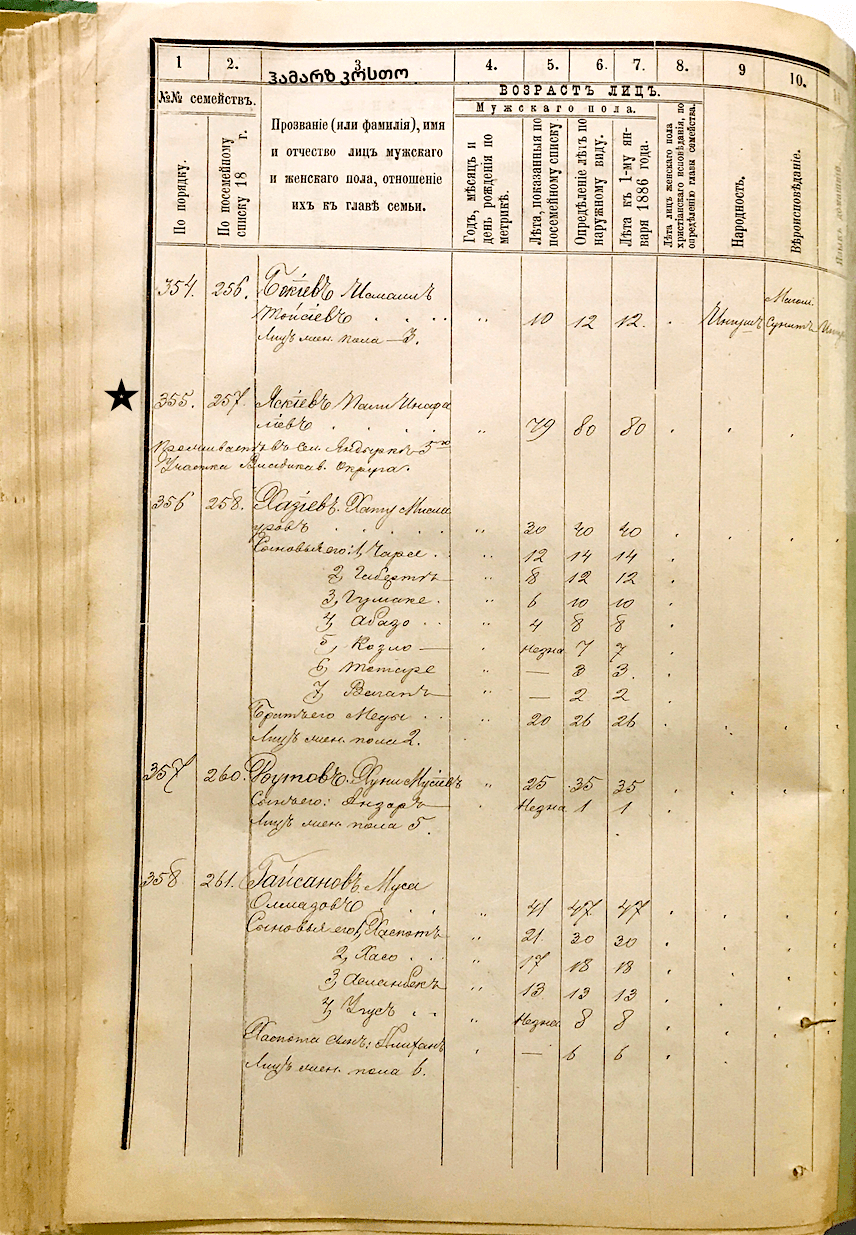 1 2. 3. 4. 5. 6. 7. 8. 9 10.
ჰამარზ კოსტო
№№ семействъ.
По порядку.
По посемейному списку 18 г.
Прозваніе (или фамилія), имя
и отчество лицъ мужскаго
и женскаго пола, отношеніе
ихъ къ главѣ семьи.
ВОЗРАСТЪ ЛИЦЪ.
Мужскаго пола.
Годъ, мѣсяцъ и
день рожденія по
метрикѣ.
Лѣта, показанныя по
посемейному списку
Опредѣленіе лѣтъ по
наружному виду.
Лѣта къ 1-му ян-
варя 1886 года.
Лѣта лицъ женскаго пола
христіанскаго исповѣданія, по
опредѣленію главы семейства.
Народность.
Вѣроисповѣданіе.
354. 256. Бекіевъ Исмаилъ
Мойсіевъ 10 12 12. Ингушъ Сунитъ
Лицъ жен. пола — 3.
355. 257. Яскіевъ Пали
ліевъ 79 80 80
Проживаетъ въ сел. Яндырка 5го
Участка Владикав. Округа.
356 258. Хазіевъ Хату
уровъ 30 40 40
Сыновья его: 1, Чарсе 12 14 14
2, 8 12 12
3, Гумаке 6 10 10
4, Абадо 4 8 8
5, Козло — Незна 7 7
6, Мотаре — 3 3.
7, Вагапъ — 2 2
Братъ его Меды 20 26 26
Лицъ жен. пола 2.
357 260. Мусіевъ 25 35 35
Сынъ его: Андаръ Незна 1 1
Лицъ жен. пола 5.
358 261. Гайсановъ Муса
Олмадовъ 41 47 47
Сыновья его: 1, Хаспотъ 21 30 30
2, Хасо 17 18 18
3, Асланбекъ 13 13 13
4, Угусъ Незна 8 8
Хаспота сынъ: Алиханъ — 6 6
Лицъ жен. пола 6.